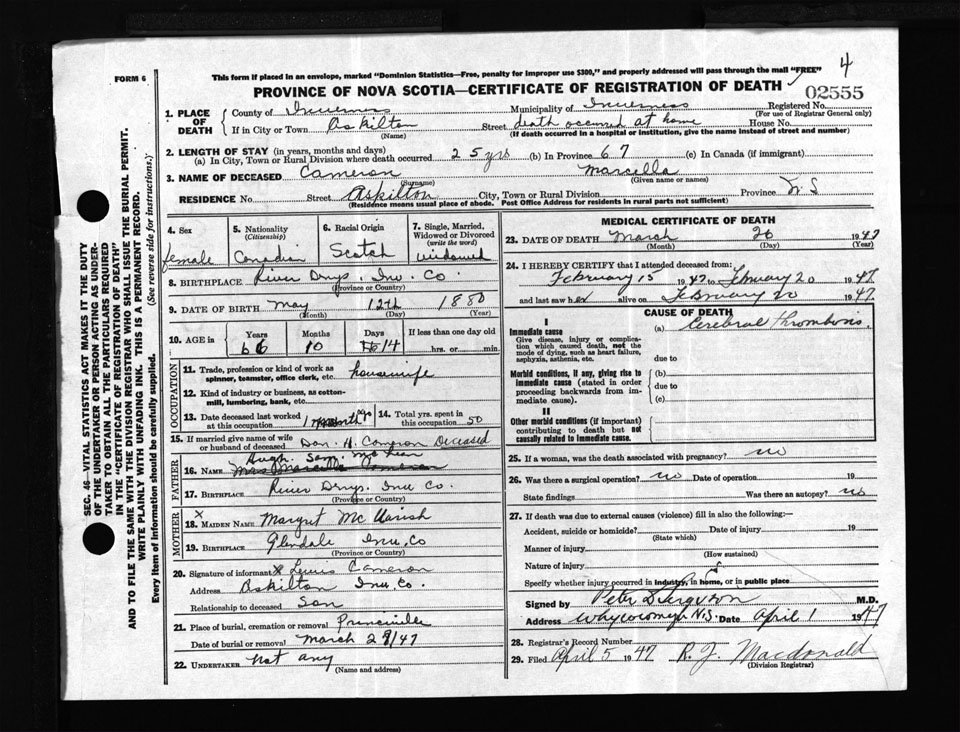 4
FORM 6
This form if placed in an envelope, marked "Dominion Statistics—Free, penalty for improper use $300," and properly addressed will pass through the mail "FREE"
PROVINCE OF NOVA SCOTIA—CERTIFICATE OF REGISTRATION OF DEATH
02555
1. PLACE OF DEATH
County of Inverness Municipality of Inverness Registered No.
(For use of Registrar General only)
If in City or Town Askilton Street death occurred at home House No.
(Name) (If death occurred in a hospital or institution, give the name instead of street and number)
2. LENGTH OF STAY (in years, months and days)
(a) In City, Town or Rural Division where death occurred 25 yrs (b) In Province 67 (c) In Canada (if immigrant)
3. NAME OF DECEASED Cameron Marcella
(Surname) (Given name or names)
RESIDENCE No. Street Askilton City, Town or Rural Division Province N S
(Residence means usual place of abode. Post Office Address for residents in rural parts not sufficient)
4. Sex female
5. Nationality (Citizenship) Canadian
6. Racial Origin Scotch
7. Single, Married, Widowed or Divorced (write the word) widowed
8. BIRTHPLACE River Dnys. Inv. Co.
(Province or Country)
9. DATE OF BIRTH May 12th 1880
(Month) (Day) (Year)
10. AGE in Years Months Days If less than one day old
66 10 14 hrs. or min.
OCCUPATION
11. Trade, profession or kind of work as spinner, teamster, office clerk, etc. housewife
12. Kind of industry or business, as cotton-mill, lumbering, bank, etc.
13. Date deceased last worked at this occupation 1 month ago
14. Total yrs. spent in this occupation 50
15. If married give name of wife or husband of deceased Dan. H. Cameron Deceased
FATHER
16. NAME Hugh Sam. McLean
17. BIRTHPLACE River Dnys. Inv Co.
(Province or Country)
MOTHER
X
18. MAIDEN NAME Margret Mc Varish
19. BIRTHPLACE Glendale Inv. Co
(Province or Country)
20. Signature of informant X Lewis Cameron
Address Askilton Inv. Co.
Relationship to deceased Son
21. Place of burial, cremation or removal Princeville
Date of burial or removal March 29/47
22. UNDERTAKER Not any
(Name and address)
MEDICAL CERTIFICATE OF DEATH
23. DATE OF DEATH March 26 1947
(Month) (Day) (Year)
24. I HEREBY CERTIFY that I attended deceased from:
February 15 1947 to February 20 1947
and last saw her alive on February 20 1947.
CAUSE OF DEATH
I
Immediate cause
Give disease, injury or complication which caused death, not the mode of dying, such as heart failure, asphyxia, asthenia, etc.
(a) Cerebral thrombosis.
due to
Morbid conditions, if any, giving rise to immediate cause (stated in order proceeding backwards from immediate cause).
(b)
due to
(c)
II
Other morbid conditions (if important) contributing to death but not causally related to immediate cause.
25. If a woman, was the death associated with pregnancy? no
26. Was there a surgical operation? no Date of operation 19
State findings Was there an autopsy? no
27. If death was due to external causes (violence) fill in also the following:—
Accident, suicide or homicide? Date of injury 19
(State which)
Manner of injury
(How sustained)
Nature of injury
Specify whether injury occurred in industry, in home, or in public place
Signed by Peter S Ferguson M.D.
Address Whycocomagh N.S. Date April 1 1947
28. Registrar's Record Number
29. Filed April 5 1947 R. J. Macdonald
(Division Registrar)
SEC. 46—VITAL STATISTICS ACT MAKES IT THE DUTY
OF THE UNDERTAKER OR PERSON ACTING AS UNDER-
TAKER TO OBTAIN ALL THE PARTICULARS REQUIRED
IN THE "CERTIFICATE OF REGISTRATION OF DEATH"
AND TO FILE THE SAME WITH THE DIVISION REGISTRAR WHO SHALL ISSUE THE BURIAL PERMIT.
WRITE PLAINLY WITH UNFADING INK. THIS IS A PERMANENT RECORD.
Every item of information should be carefully supplied. (See reverse side for instructions.)